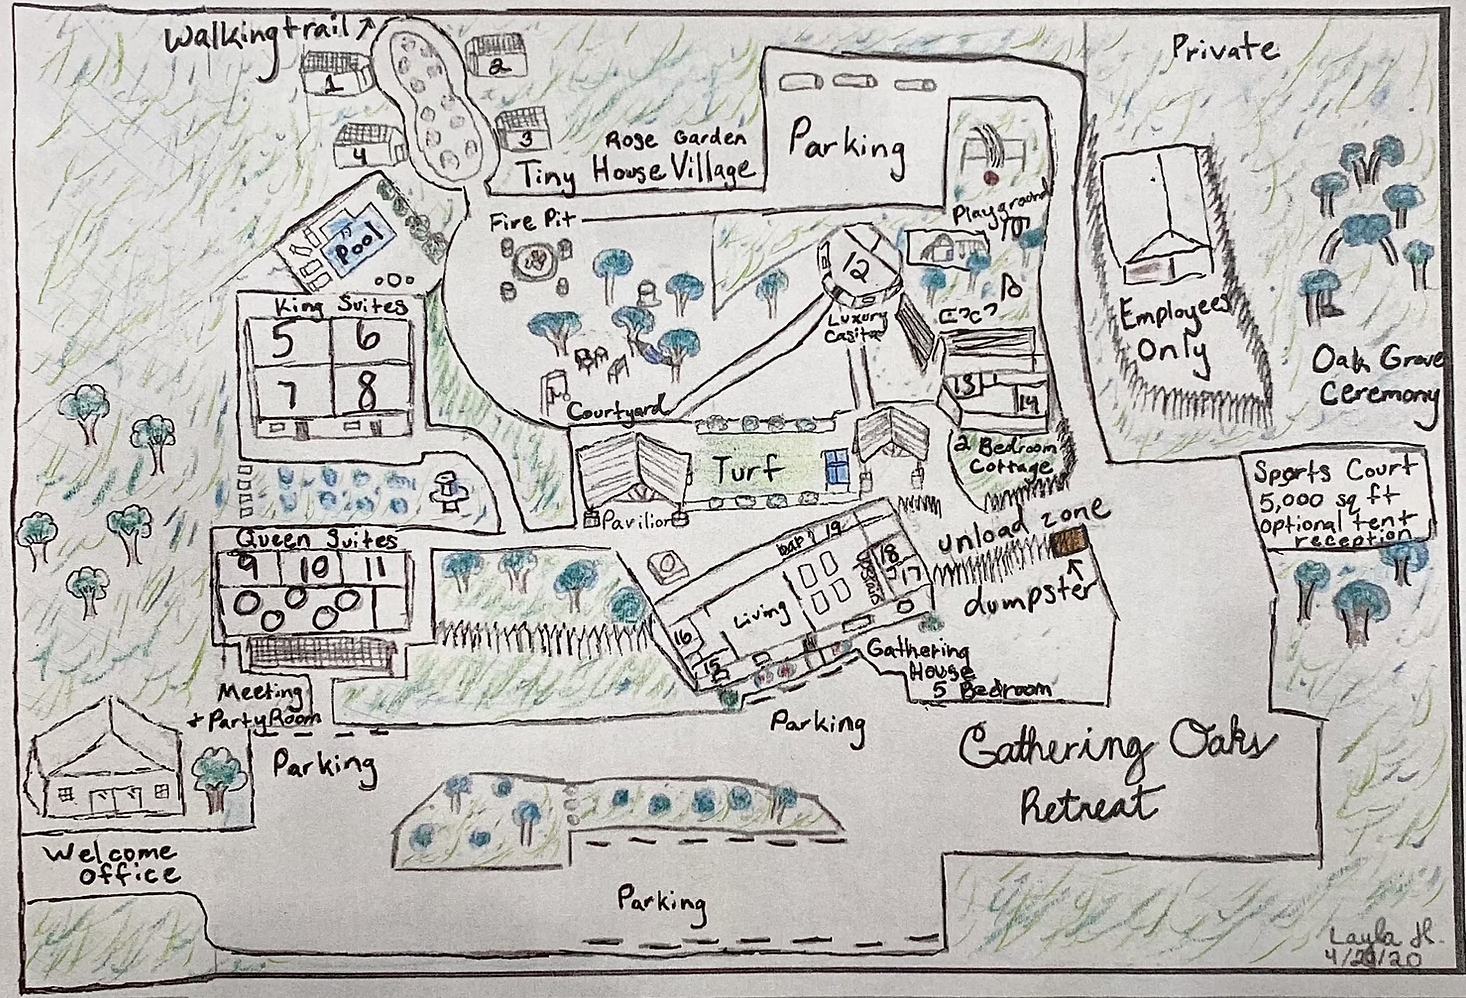 Walking trail
Private
1
2
3
4
Rose Garden
Tiny House Village
Parking
Playground
Fire Pit
Pool
12
Luxury
Casita
King Suites
5 6
7 8
Employees
Only
Oak Grove
Ceremony
Courtyard
13
14
2 Bedroom
Cottage
Turf
Pavilion
Sports Court
5,000 sq ft
optional tent
reception
Queen Suites
9 10 11
unload zone
dumpster
19
18
17
Living
16
15
Gathering
House
5 Bedroom
Meeting
+ Party Room
Parking
Parking
Gathering Oaks
Retreat
Welcome
office
Parking
Layla H.